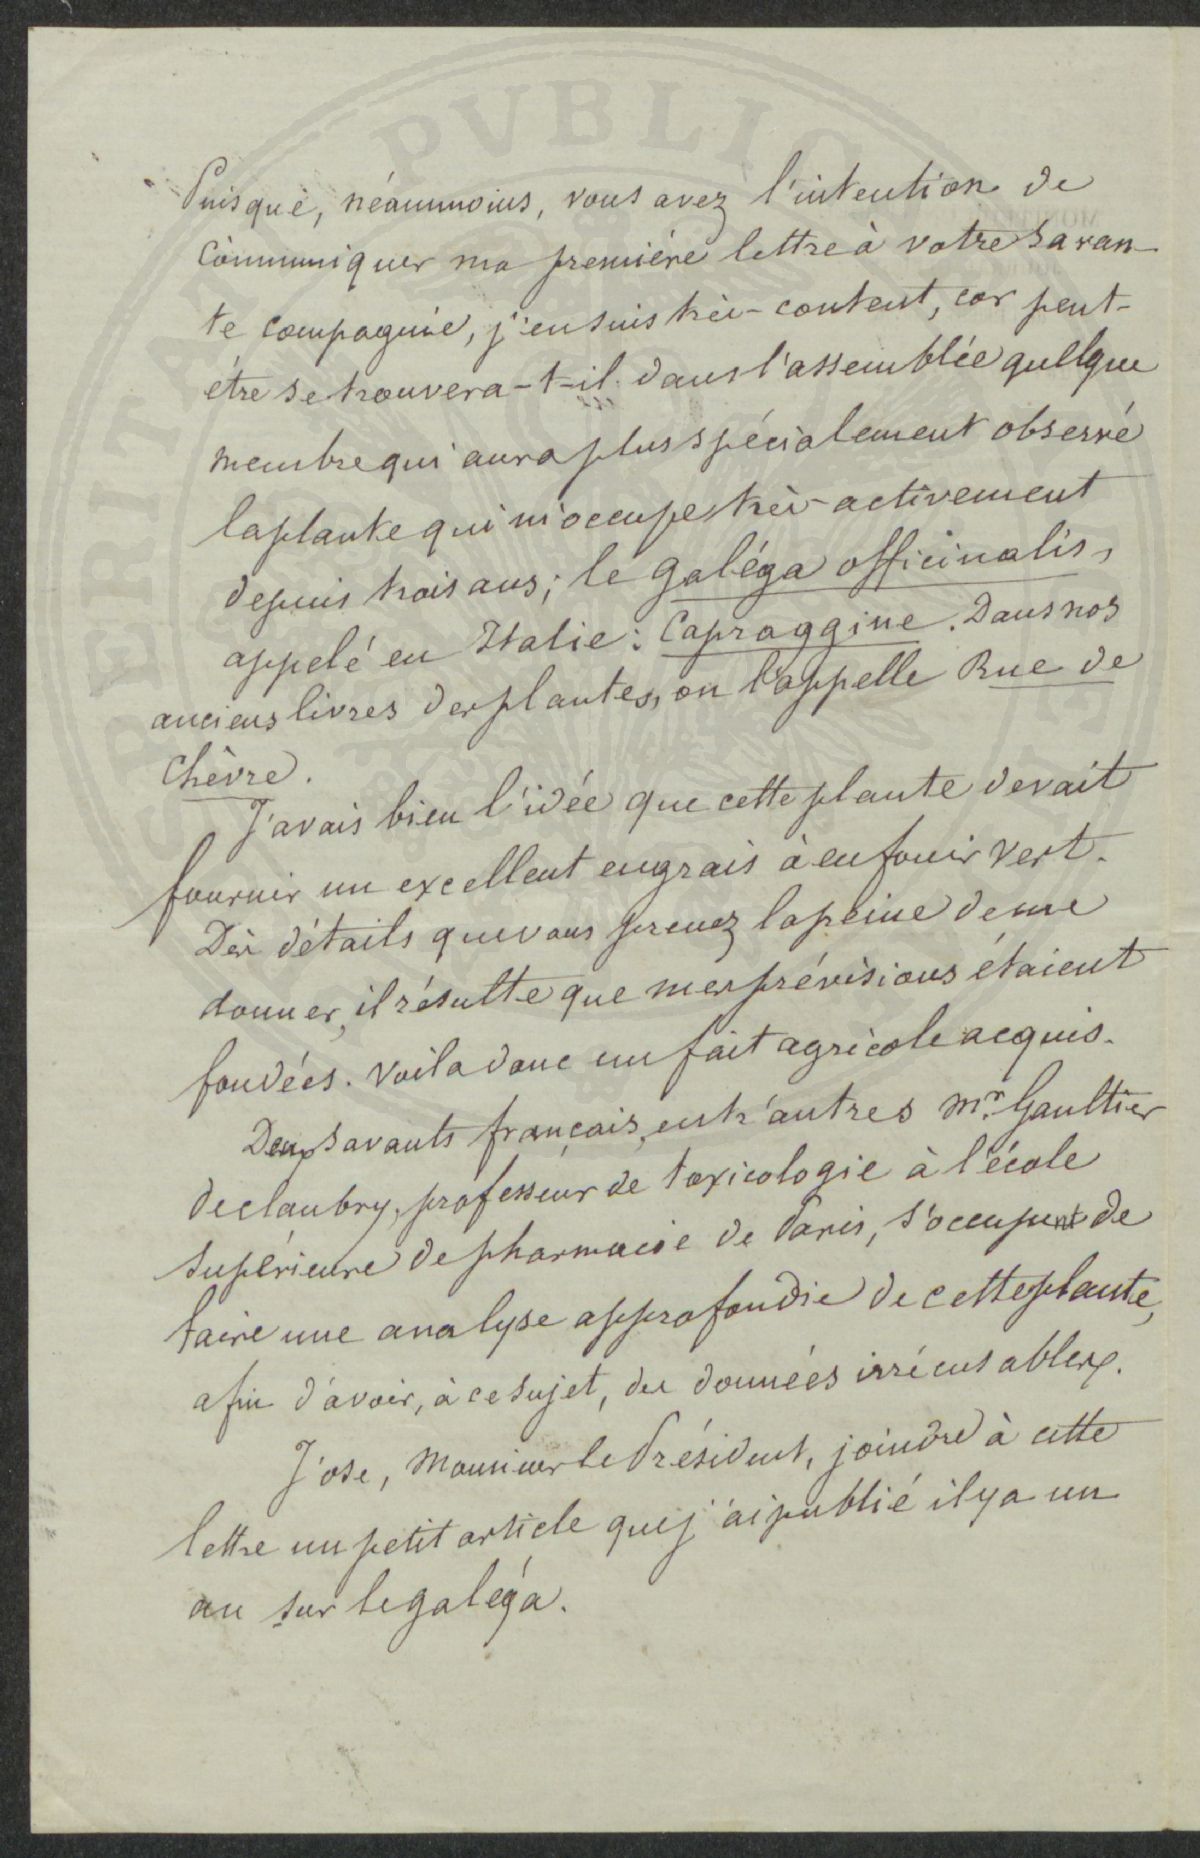 Puisque, néanmoins, vous avez l'intention de
communiquer ma première lettre à votre savan-
te compagnie, j'en suis très-content, car peut-
être se trouvera-t-il dans l'assemblée quelque
membre qui aura plus spécialement observé
la plante qui m'occupe très-activement
depuis trois ans; le galéga officinalis,
appelé en Italie: Capraggine. Dans nos
anciens livres des plantes, on l'appelle Rue de
Chèvre.
J'avais bien l'idée que cette plante devait
fournir un excellent engrais à enfouir vert.
Des détails que vous prenez la peine de me
donner, il résulte que mes prévisions étaient
fondées. Voila donc un fait agricole acquis.
Deux savants français, entr'autres Mr. Gaultier
de claubry, professeur de toxicologie à l'école
supérieure de pharmacie de Paris, s'occupent de
faire une analyse approfondie de cette plante,
afin d'avoir, à ce sujet, des données irrécusables.
J'ose, Monsieur le Président, joindre à cette
lettre un petit article que j'ai publié il y a un
an sur le galéga.